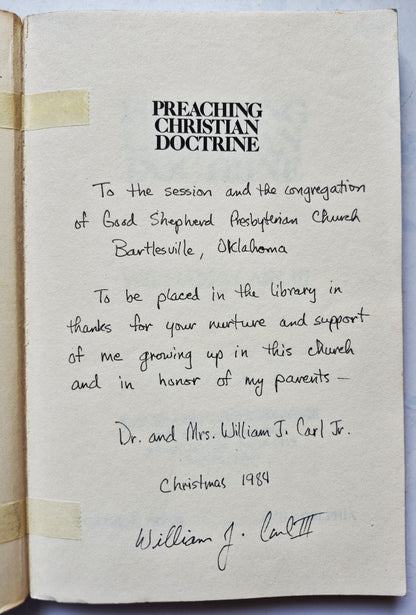 PREACHING
CHRISTIAN
DOCTRINE
To the session and the congregation
of Good Shepherd Presbyterian Church
Bartlesville, Oklahoma
To be placed in the library in
thanks for your nurture and support
of me growing up in this church
and in honor of my parents —
Dr. and Mrs. William J. Carl Jr.
Christmas 1984
William J. Carl III